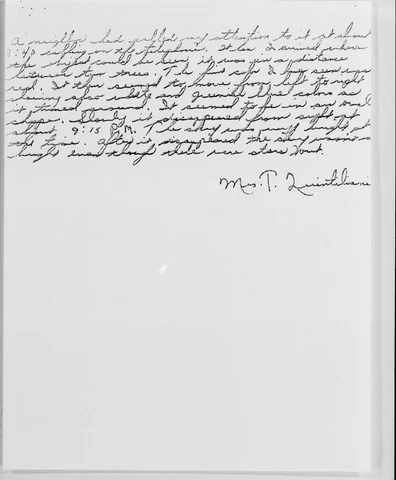 A neighbor had called my attention to it at about
8:40 calling on the telephone. When I arrived where
the object could be seen, it was in a distance
between two trees. The first color I seen was
red. It then seemed to move from left to right
showing also white and greenish blue colors as
it turned around. It seemed to be in an oval
shape. Slowly it disappeared from sight at
about 9:15 P.M. The sky was bright at
the time. After it disappeared the sky was
bright even though there were stars out.
Mrs. T. Quintiliani